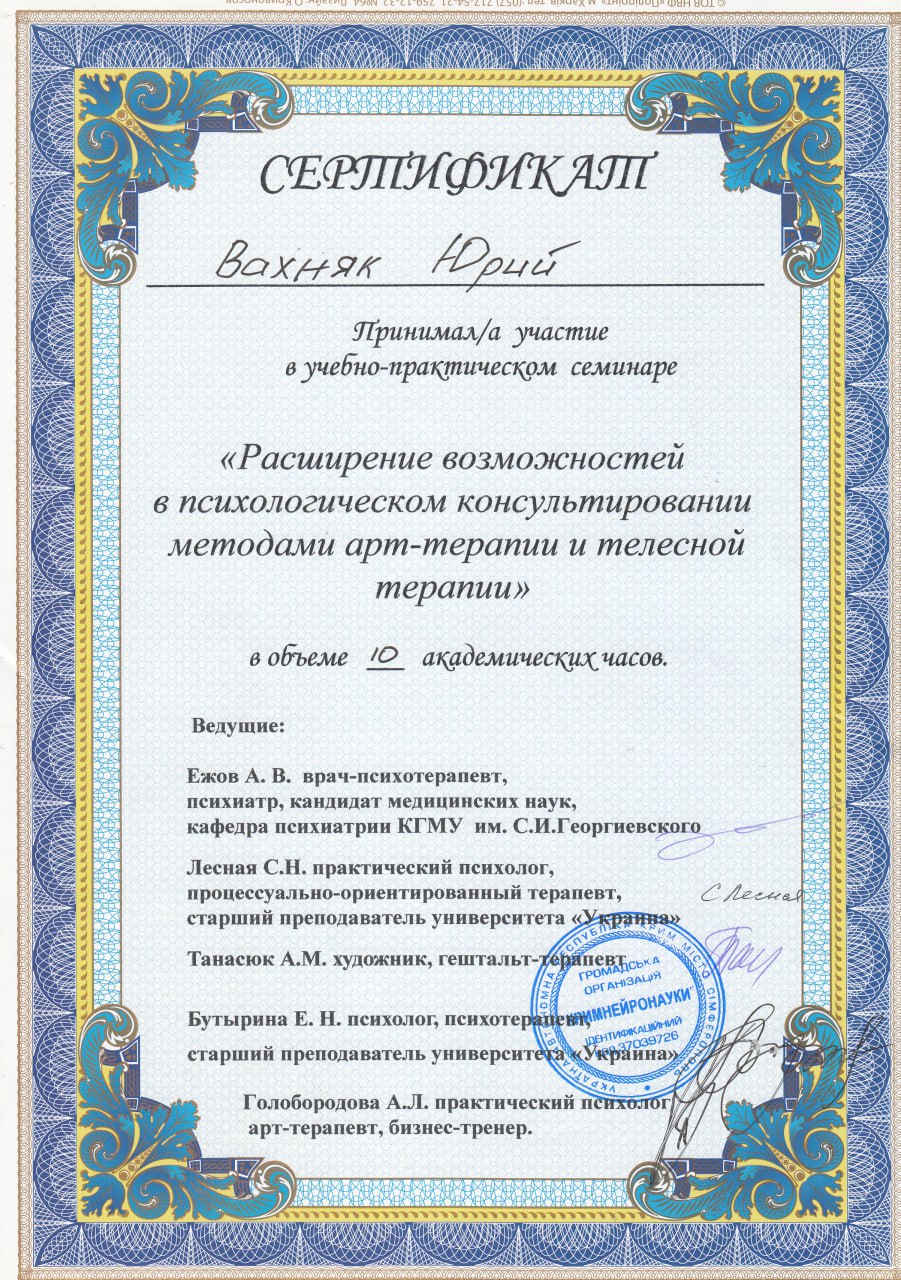 © ТОВ НВФ «Поліпрінт», м.Харків, тел. (057) 717-54-21, 759-12-32. №64. Дизайн: О.Кривоносов
СЕРТИФИКАТ
Вахняк Юрий
Принимал/а участие
в учебно-практическом семинаре
«Расширение возможностей
в психологическом консультировании
методами арт-терапии и телесной
терапии»
в объеме 10 академических часов.
Ведущие:
Ежов А. В. врач-психотерапевт,
психиатр, кандидат медицинских наук,
кафедра психиатрии КГМУ им. С.И.Георгиевского
Лесная С.Н. практический психолог,
процессуально-ориентированный терапевт,
старший преподаватель университета «Украина»
СЛесная
Танасюк А.М. художник, гештальт-терапевт
Бутырина Е. Н. психолог, психотерапевт,
старший преподаватель университета «Украина»
Голобородова А.Л. практический психолог
арт-терапевт, бизнес-тренер.
УКРАЇНА АВТОНОМНА РЕСПУБЛІКА КРИМ МІСТО СІМФЕРОПОЛЬ
ГРОМАДСЬКА
ОРГАНІЗАЦІЯ
"КРИМНЕЙРОНАУКИ"
ІДЕНТИФІКАЦІЙНИЙ
КОД 37039726